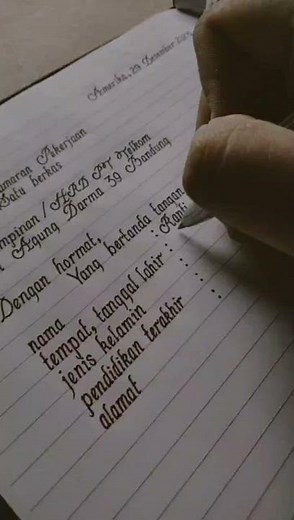 Amerika, 29 Desember
Pekerjaan
Satu berkas
/ HRD PT Telkom
Agung Darma 39 Bandung
Dengan hormat,
Yang bertanda tangan
nama :
tempat, tanggal lahir :
jenis kelamin :
pendidikan terakhir :
alamat :